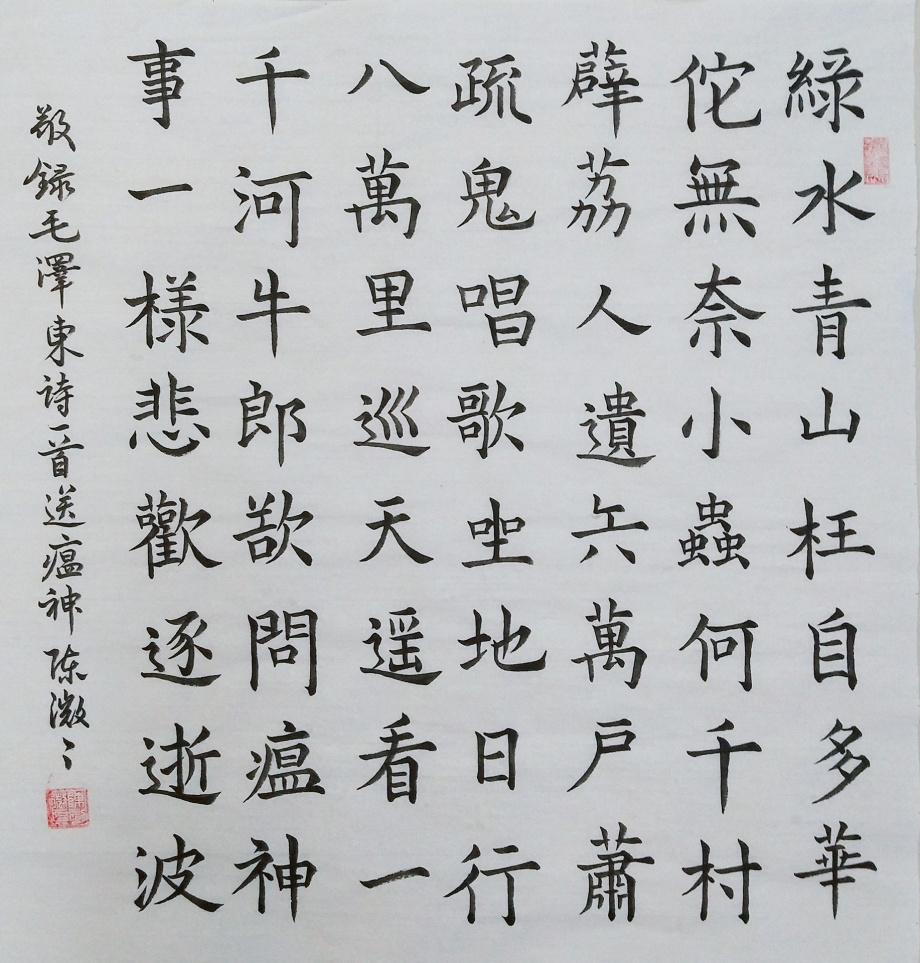 綠水青山枉自多華
佗無奈小蟲何千村
薜荔人遺矢萬戶蕭
疏鬼唱歌坐地日行
八萬里巡天遥看一
千河牛郎欲問瘟神
事一様悲歡逐逝波
敬録毛澤東诗一首送瘟神陈溦〻